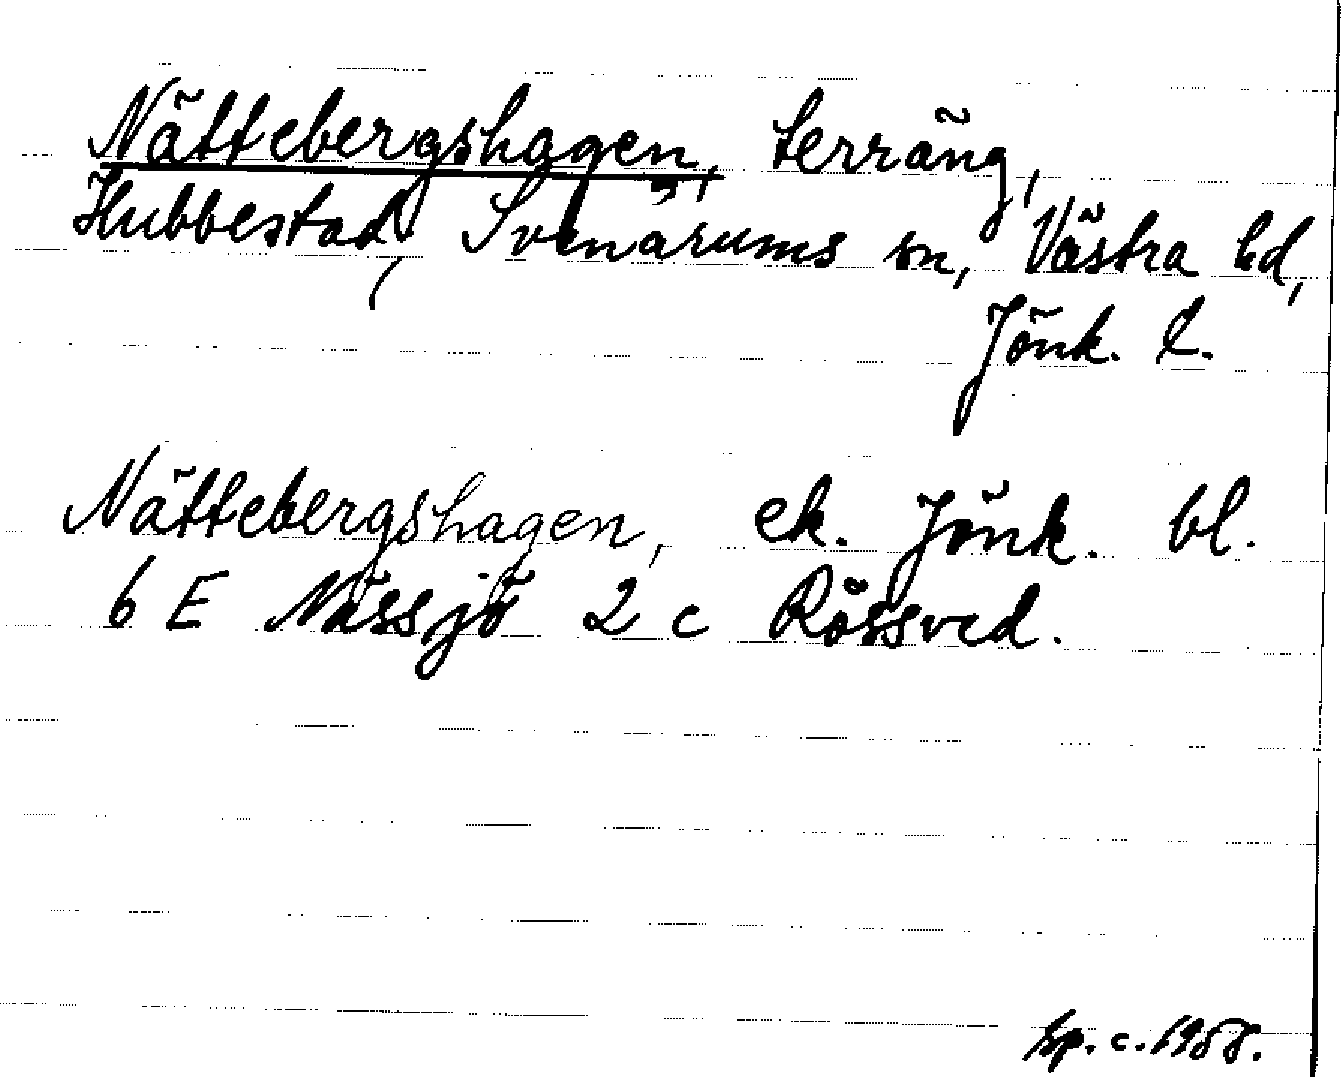 Nättebergshagen, terräng,
Hubbestad, Svenarums sn, Västra hd,
Jönk. l.
Nättebergshagen, ek. Jönk. bl.
6 E Nässjö 2 c Rössved.
Sp. c. 1988.